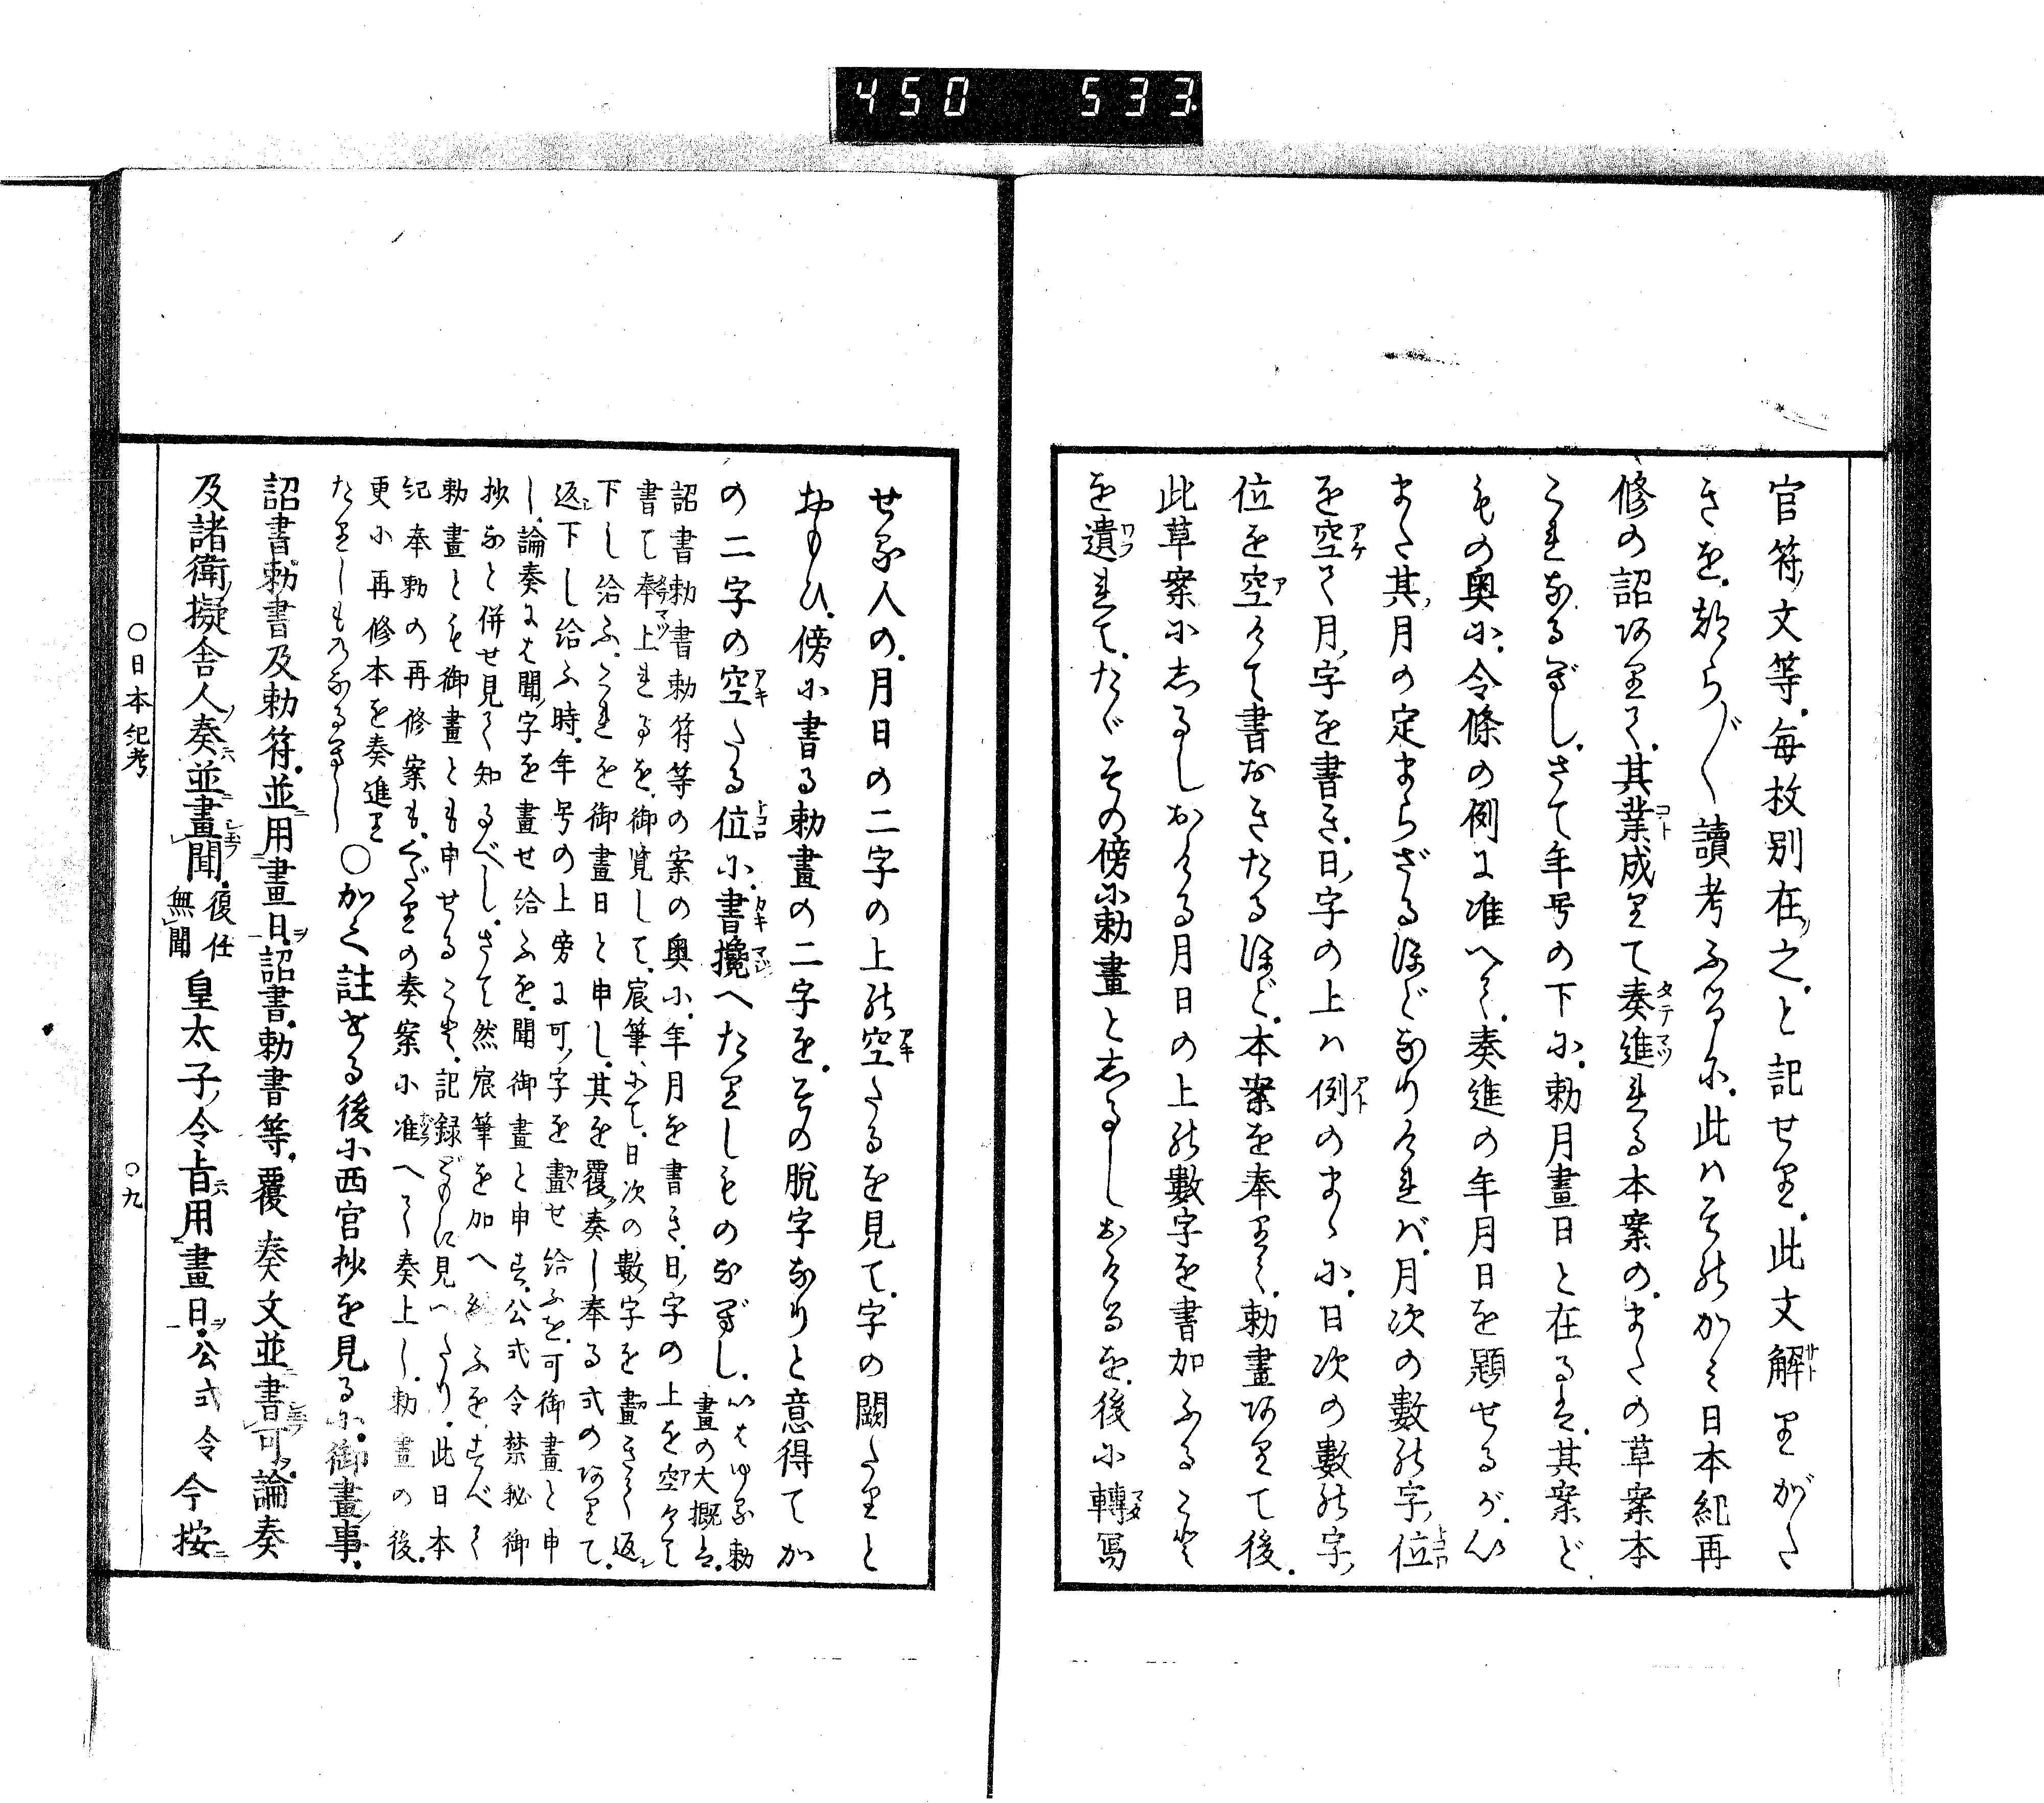 450 533
官符文等。毎枚別在之。と記せり。此文解りがた
きを。熟らつらつら讀考ふるに。此ハそのかみ日本紀再
修の詔ありて。其業成りて奏進れる本案の。またの草案本
これなるべし。さて年号の下に。勅月畫日と在るは。其案ど
もの奥に。令條の例に准へて。奏進の年月日を題せるが。
また其月の定まらざるほどなりければ。月次の數の字位
を空て月字を書き。日字の上ハ例のまゝに。日次の數の字
位を空けて書おきたるほど。本案を奉りて。勅畫ありて後。
此草案にしるしおける月日の上の數字を書加ふること
を遺れて。たゞその傍に勅畫としるしおけるを。後に轉寫
せる人の。月日の二字の上の空たるを見て。字の闕たりと
おもひ。傍に書る勅畫の二字を。その脱字なりと意得てか
の二字の空たる位に。書攙へたりしものなるべし。いはゆる勅
畫の大概は。
詔書勅書勅符等の案の奥に。年月を書き。日字の上を空けて
書て奉上れるを。御覧して。宸筆にて。日次の數字を畫きて返
下し給ふ。これを御畫日と申し。其を覆奏し奉る式のありて。
返下し給ふ時。年号の上旁に可字を畫せ給ふを。可御畫と申
し。論奏には聞字を畫せ給ふを。聞御畫と申す。公式令禁秘御
抄など併せ見て知るべし。さて然宸筆を加へ給ふを。すべて
勅畫とも御畫とも申せること。記録どもに見へたり。此日本
紀奉勅の再修案も。くだりの奏案に准へて奏上し。勅畫の後。
更に再修本を奏進り
たりしものなるべし 〇かく註せる後に西宮抄を見るに。御畫事。
詔書。勅書及勅符。並用畫日。詔書。勅書等。覆奏文並書可。論奏
及諸衛擬舎人奏並畫聞。復任無聞 皇太子令旨用畫日。公式令 今按
〇日本紀考 〇九